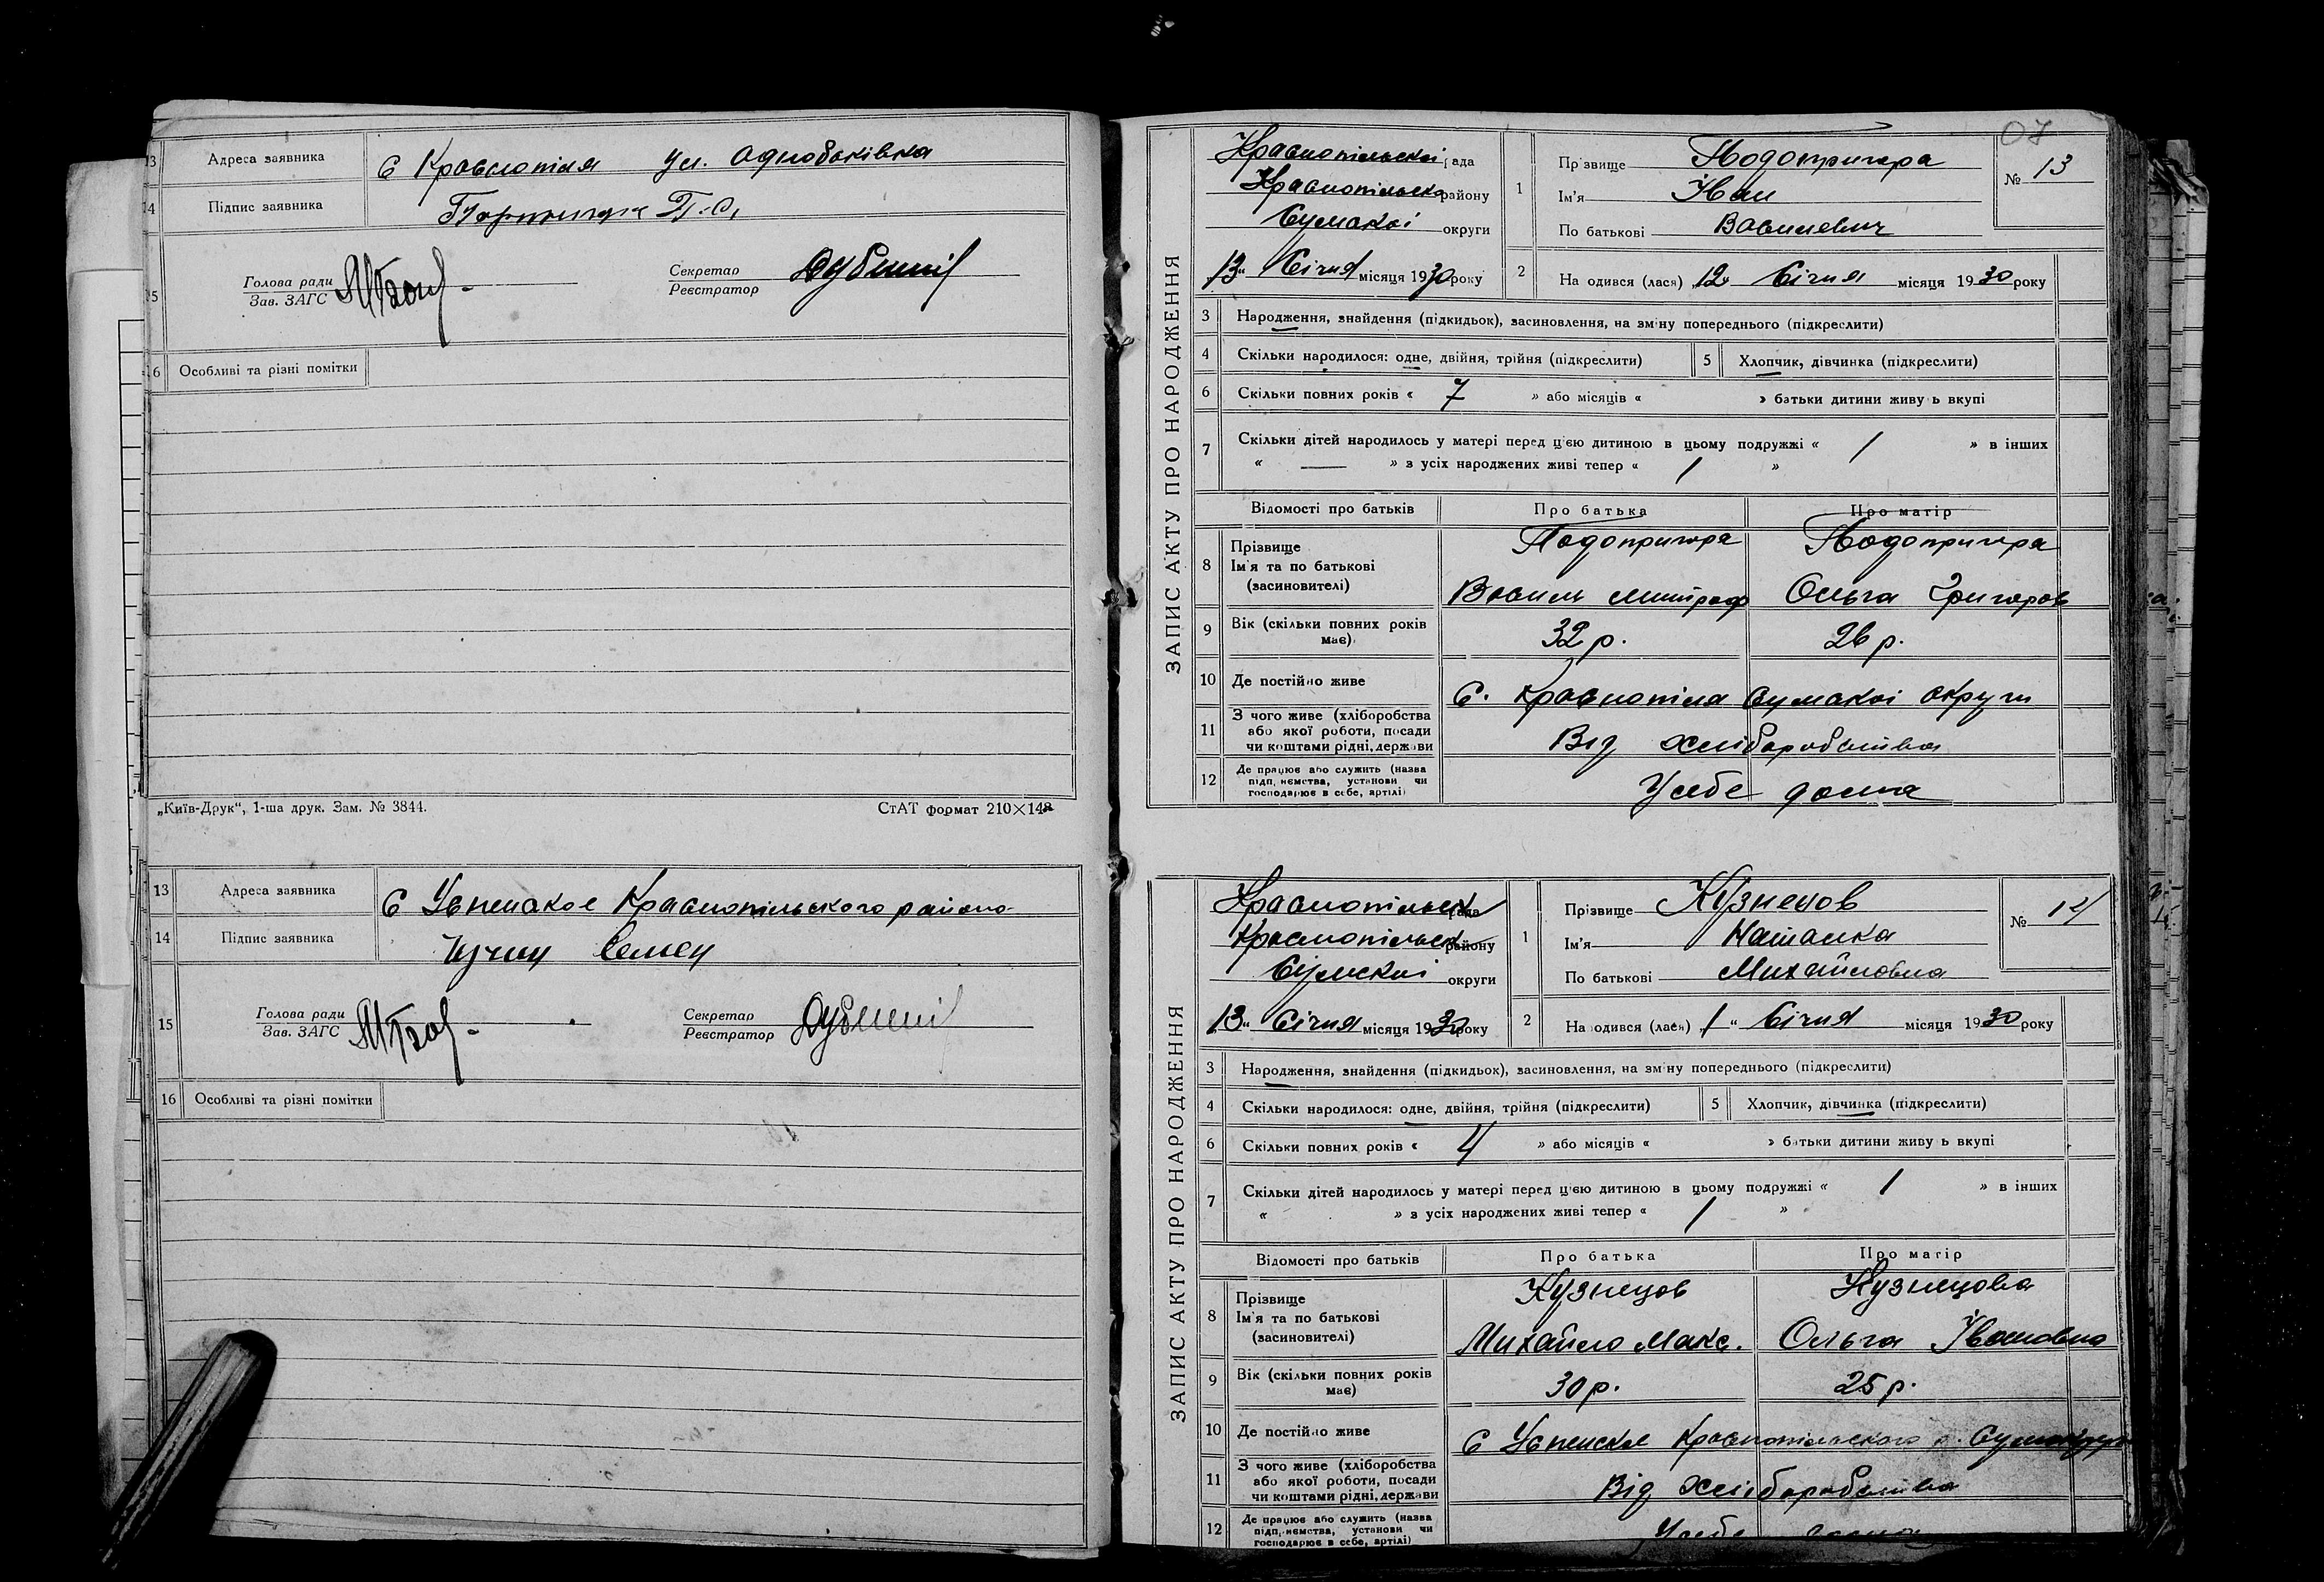 13 Адреса заявника С Краснопілля ул. Однобоківка
14 Підпис заявника П.О.
15 Голова ради Секретар
Зав. ЗАГС Реєстратор
16 Особливі та різні помітки
„Київ-Друк“, 1-ша друк. Зам. № 3844. СтАТ формат 210×148
13 Адреса заявника С Успенское Краснопільского району
14 Підпис заявника Семен
15 Голова ради Секретар
Зав. ЗАГС Реєстратор
16 Особливі та різні помітки
07
ЗАПИС АКТУ ПРО НАРОДЖЕННЯ
Краснопільскої рада
Краснопільско району
Сумскої округи
„13“ Січня місяця 1930 року
1 Прізвище Подопригора
Ім'я Іван
По батькові Васильевич
№ 13
2 Народився (лася) „12“ Січня місяця 1930 року
3 Народження, знайдення (підкидьок), засиновлення, на зміну попереднього (підкреслити)
4 Скільки народилося: одне, двійня, трійня (підкреслити) 5 Хлопчик, дівчинка (підкреслити)
6 Скільки повних років « 7 » або місяців « » батьки дитини живуть вкупі
7 Скільки дітей народилось у матері перед цією дитиною в цьому подружжі « 1 » в інших
« — » з усіх народжених живі тепер « 1 »
Відомості про батьків Про батька Про матір
8 Прізвище Подопригора Подопригора
Ім'я та по батькові
(засновителі) Василь Митроф Ольга Григоров
9 Вік (скільки повних років має) 32 р. 26 р.
10 Де постійно живе С. Краснопілля Сумскої округи
11 З чого живе (хліборобства
або якої роботи, посади
чи коштами рідні, держави Від хліборобства
12 Де працює або служить (назва
підприємства, установи чи
господарює в себе, артілі) У себе дома
ЗАПИС АКТУ ПРО НАРОДЖЕННЯ
Краснопільск рада
Краснопільск району
Сумскої округи
„13“ Січня місяця 1930 року
1 Прізвище Кузнецов
Ім'я Наталка
По батькові Михайловна
№ 14
2 Народився (лася) „1“ Січня місяця 1930 року
3 Народження, знайдення (підкидьок), засиновлення, на зміну попереднього (підкреслити)
4 Скільки народилося: одне, двійня, трійня (підкреслити) 5 Хлопчик, дівчинка (підкреслити)
6 Скільки повних років « 4 » або місяців « » батьки дитини живуть вкупі
7 Скільки дітей народилось у матері перед цією дитиною в цьому подружжі « 1 » в інших
« » з усіх народжених живі тепер « 1 »
Відомості про батьків Про батька Про матір
8 Прізвище Кузнецов Кузнецова
Ім'я та по батькові
(засиновителі) Михайло Макс. Ольга Івановна
9 Вік (скільки повних років має) 30 р. 25 р.
10 Де постійно живе С Успенское Краснопільского р.
11 З чого живе (хліборобства
або якої роботи, посади
чи коштами рідні, держави Від хліборобства
12 Де працює або служить (назва
підприємства, установи чи
господарює в себе, артілі) У себе